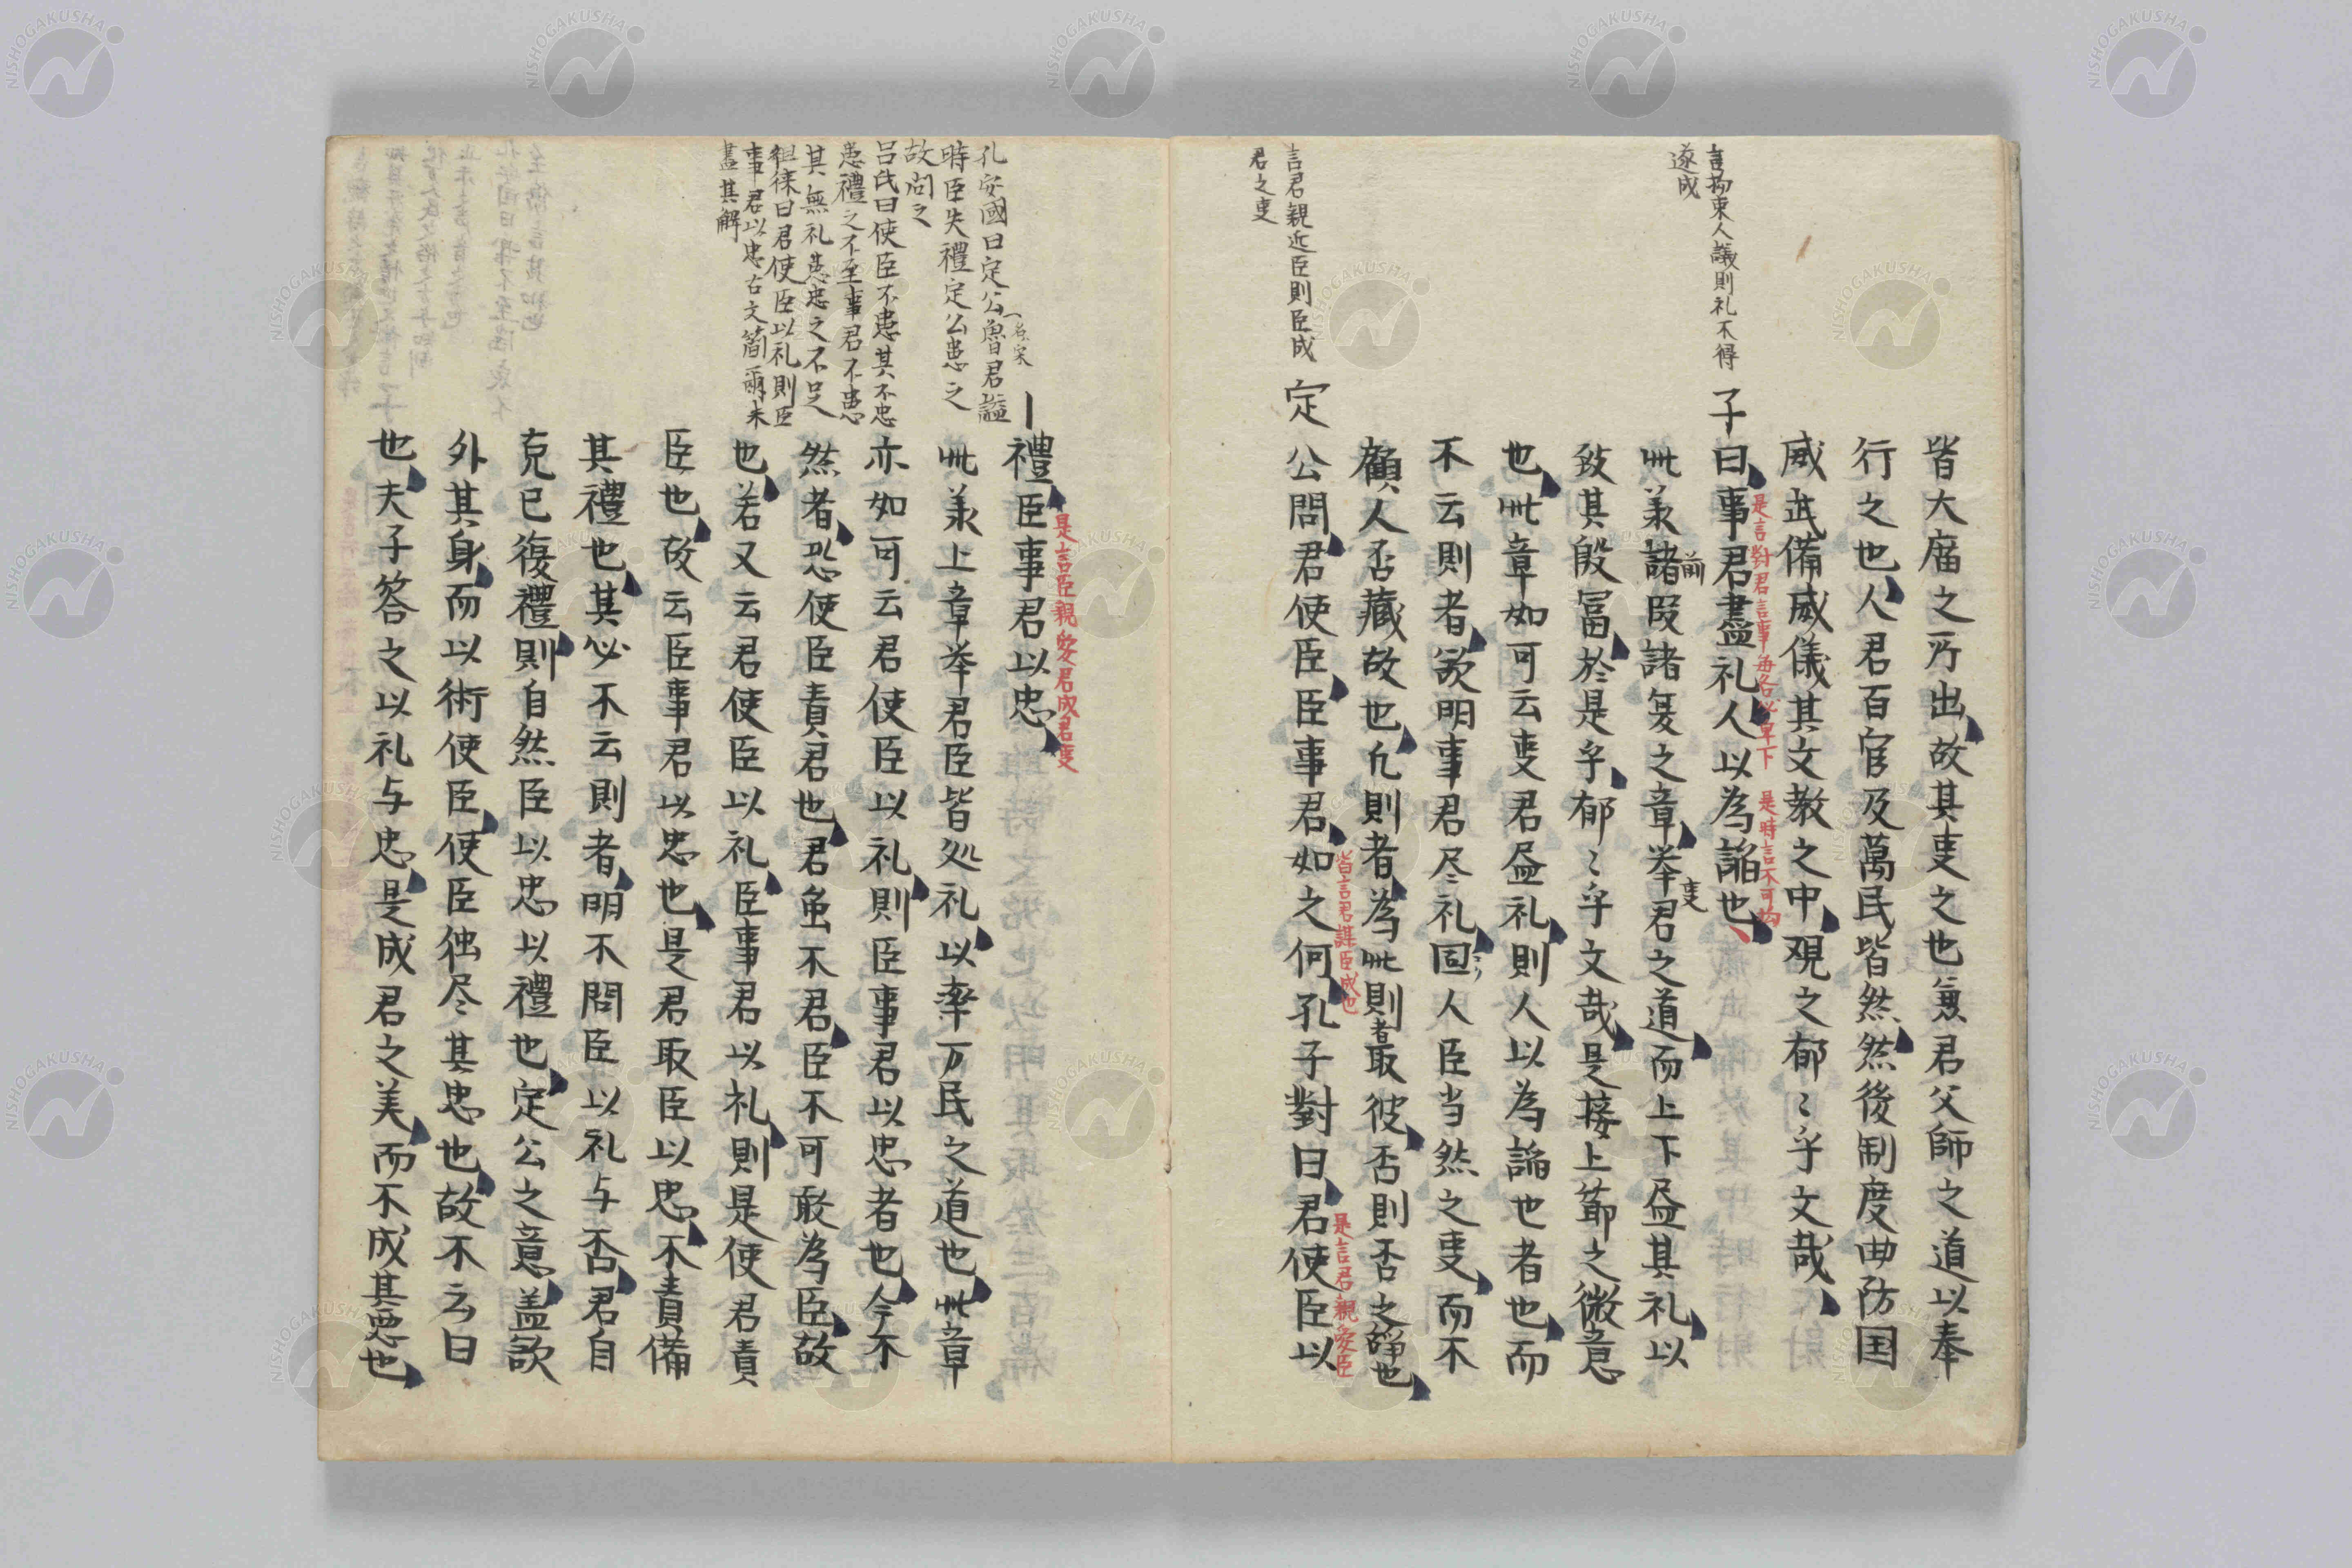 皆大庿之所出故其叓之也無君父師之道以奉
行之也人君百官及萬民皆然然後制度曲防国
威武備威儀其文教之中観之郁〻乎文哉
言拘束人議則礼不得
遂成
子曰事君盡礼人以為諂也
是言對君言事每各必卑下
是時言不可拘
此羕諸前叚諸复之章举叓君之道而上下尽其礼以
致其殷冨於是乎郁〻乎文哉是接上莭之微意
也此章如可云叓君尽礼則人以為諂也者也而
不云則者欲明事君尽礼固人臣当然之叓而不
顧人否藏故也凢則者為此則者取彼否則否之辞也
言君親近臣則臣成
君之叓
定公問君使臣臣事君如之何孔子對曰君使臣以
皆言君謀臣成也
是言君親愛臣
孔安國曰定公魯君謚
時臣失禮定公患之
故问之
吕氏曰使臣不患其不忠
患禮之不至事君不患
其無礼患忠之不足
徂徠曰君使臣以礼則臣
事君以忠古文簡爾未
盡其解
禮臣事君以忠
是言臣親愛君成君叓
此羕上章举君臣皆処礼以率万民之道也此章
亦如可云君使臣以礼則臣事君以忠者也今不
然者恐使臣責君也君虽不君臣不可敢為臣故
也若又云君使臣以礼臣事君以礼則是使君責
臣也故云臣事君以忠也是君取臣以忠不責備
其禮也其必不云則者明不問臣以礼与否君自
克已復禮則自然臣以忠以禮也定公之意盖欲
外其身而以術使臣使臣独尽其忠也故不云曰
也夫子答之以礼与忠是成君之美而不成其悪也
NISHOGAKUSHA